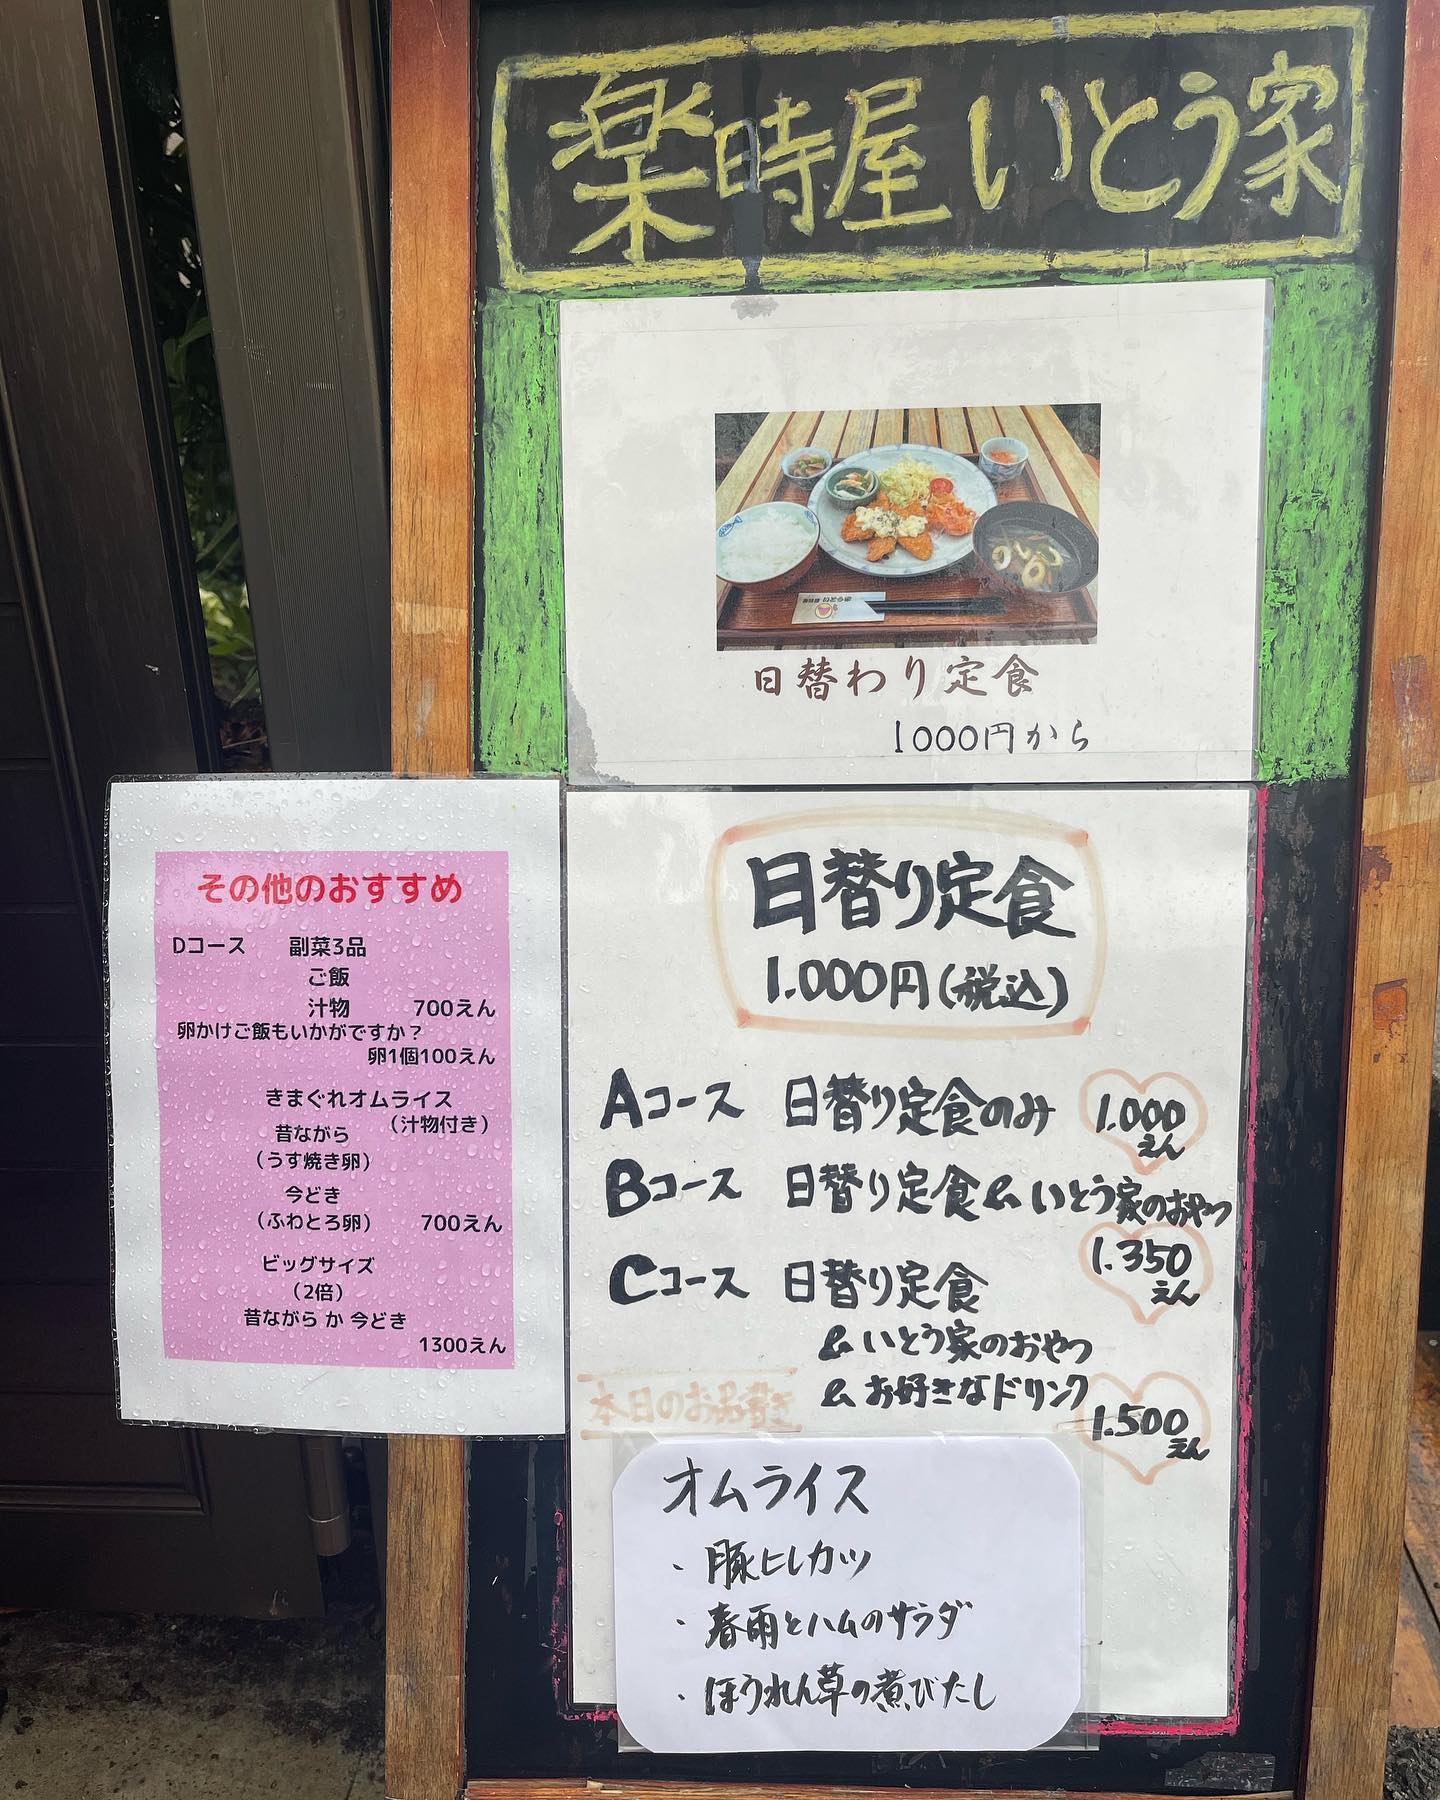 楽時屋 いとう家
日替わり定食
1000円から
その他のおすすめ
Dコース 副菜3品
ご飯
汁物 700えん
卵かけご飯もいかがですか？
卵1個100えん
きまぐれオムライス
（汁物付き）
昔ながら
（うす焼き卵）
今どき
（ふわとろ卵） 700えん
ビッグサイズ
（2倍）
昔ながら か 今どき
1300えん
日替り定食
1.000円(税込)
Aコース 日替り定食のみ 1.000
えん
Bコース 日替り定食 & いとう家のおやつ
1.350
えん
Cコース 日替り定食
& いとう家のおやつ
& お好きなドリンク
1.500
えん
本日のお品書き
オムライス
・豚ヒレカツ
・春雨とハムのサラダ
・ほうれん草の煮びたし